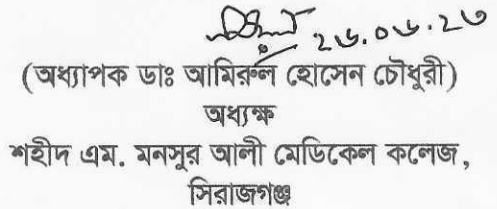 ২৬.০৬.২৩
(অধ্যাপক ডাঃ আমিরুল হোসেন চৌধুরী)
অধ্যক্ষ
শহীদ এম. মনসুর আলী মেডিকেল কলেজ,
সিরাজগঞ্জ